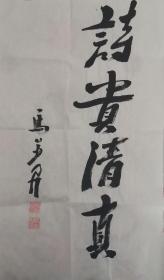 詩貴清真
馬步升